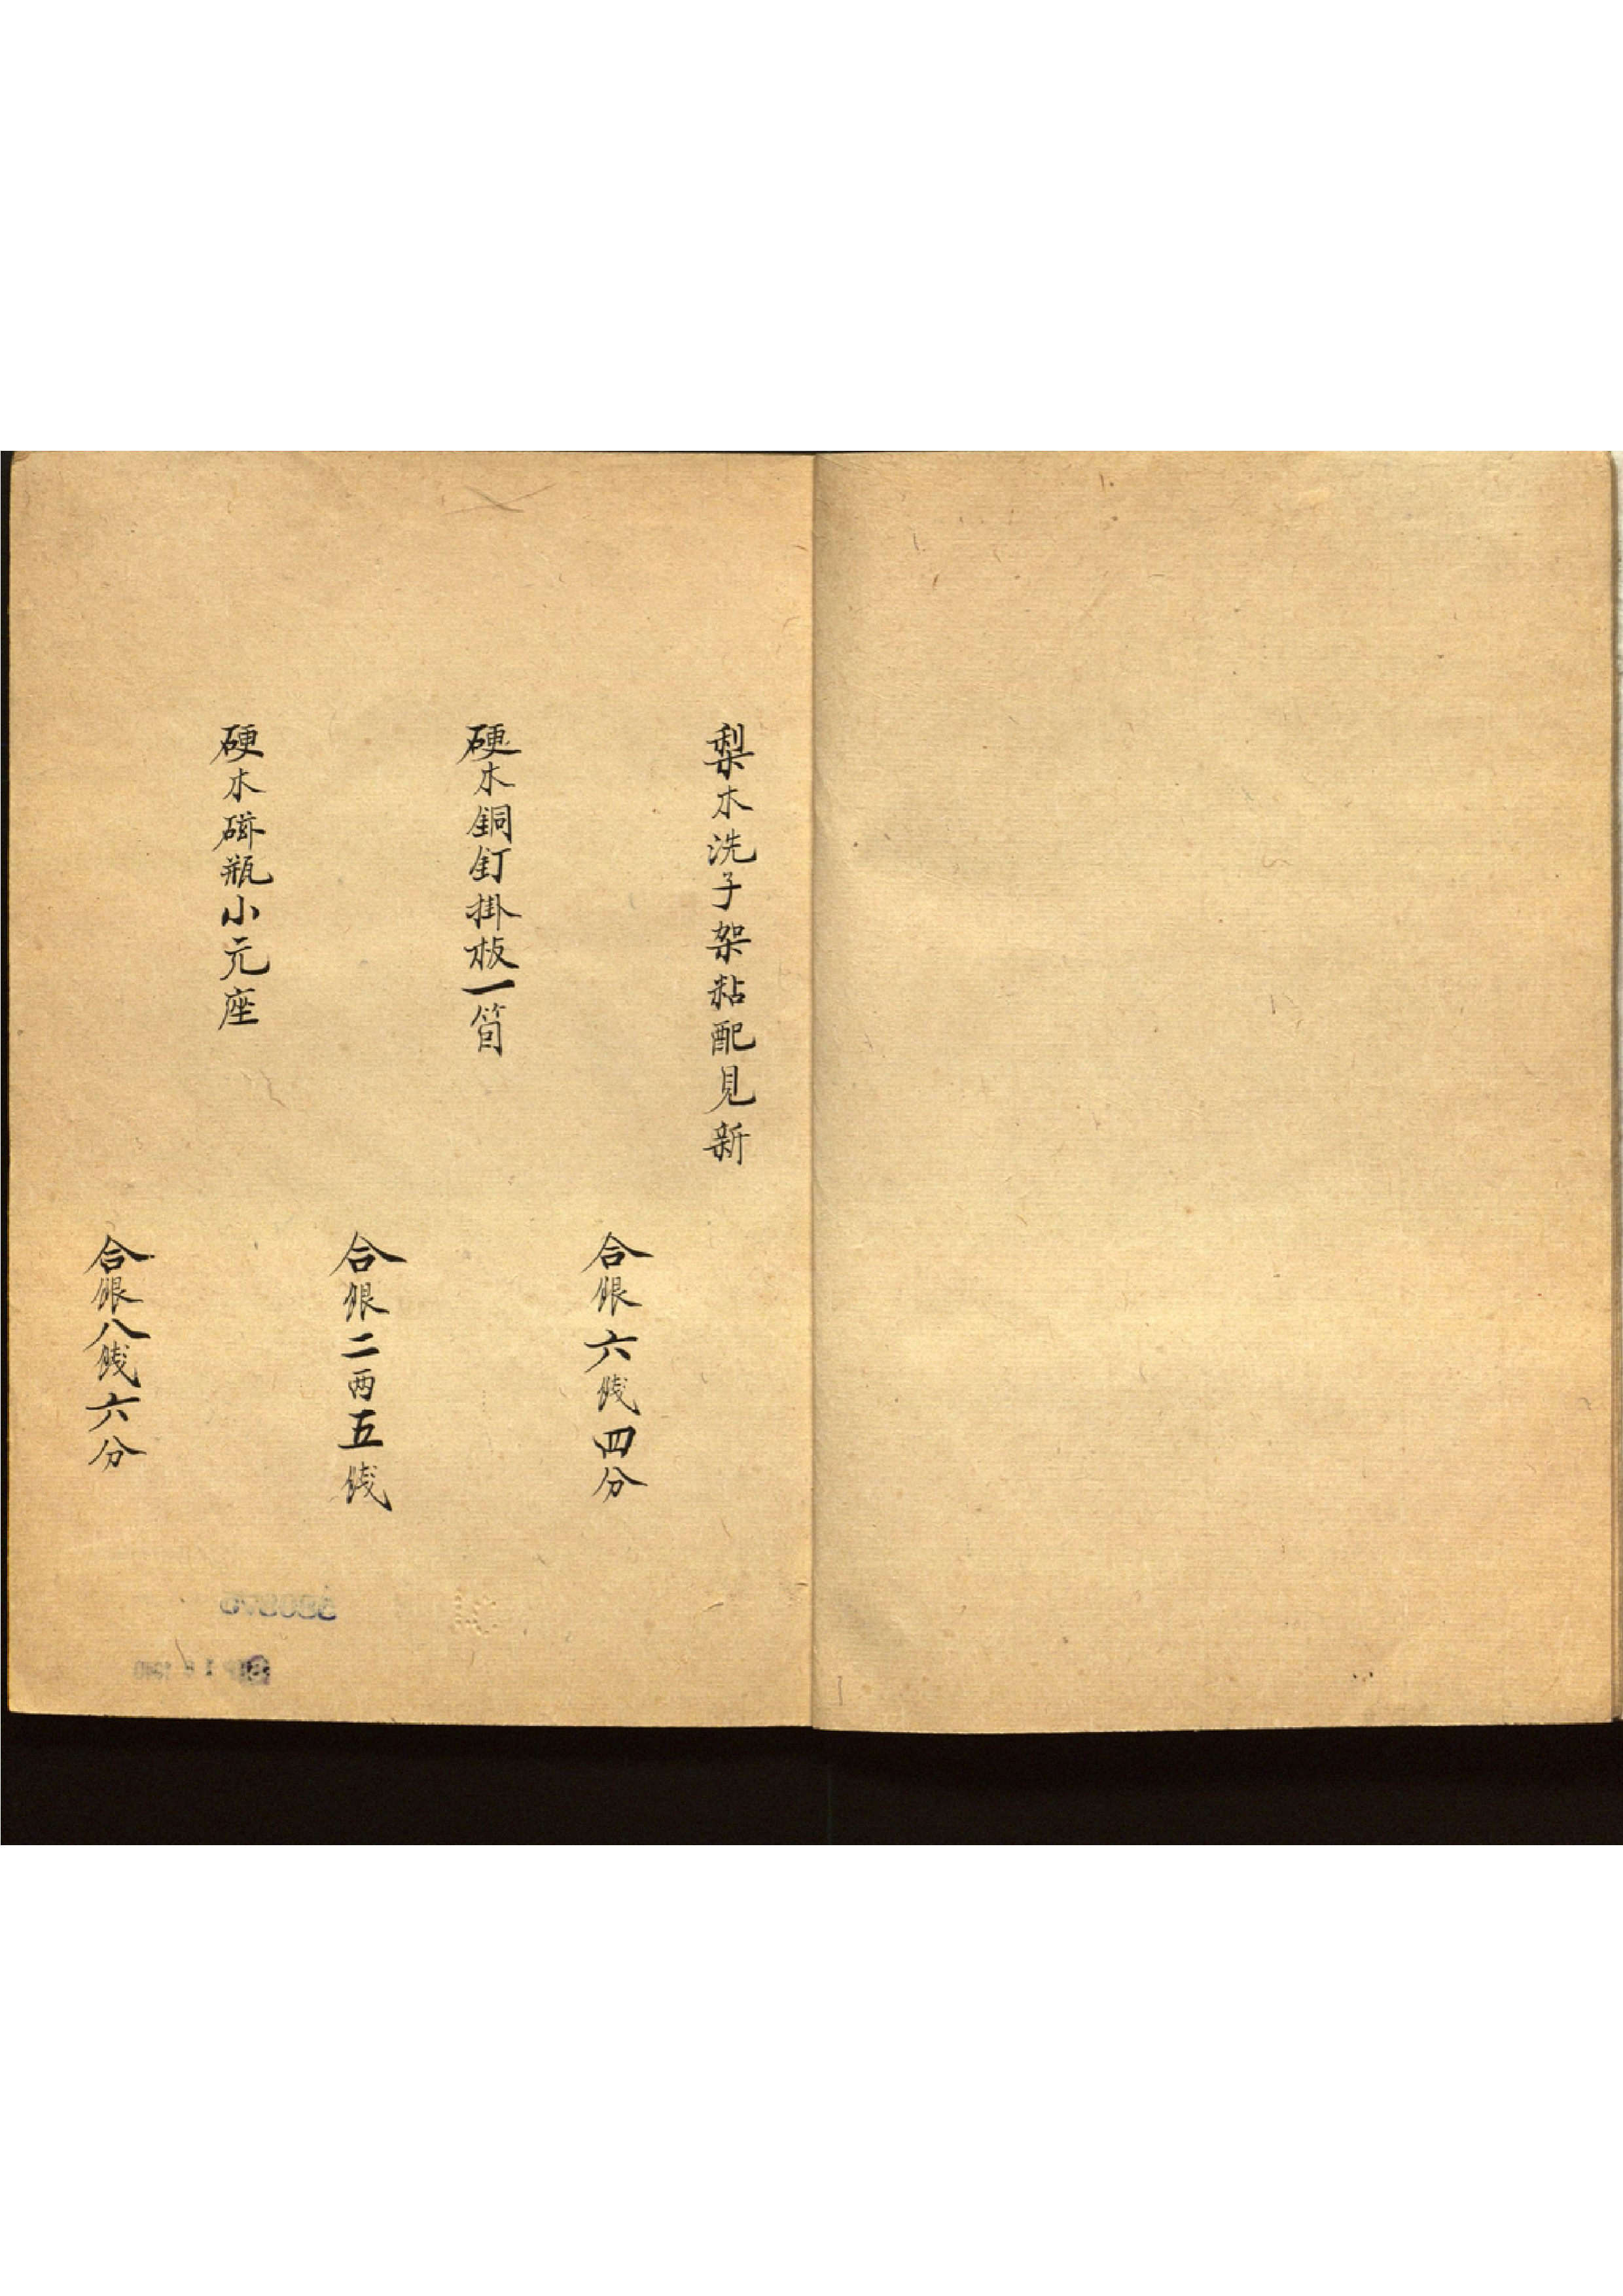 梨木洗子架粘配見新
合銀六錢四分
硬木銅釘掛板一箇
合銀二两五錢
硬木磁瓶小元座
合銀八錢六分